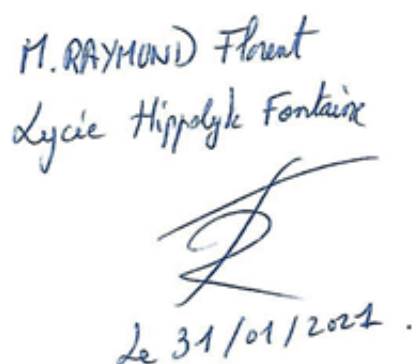 M. RAYMOND Florent
Lycée Hippolyte Fontaine
Le 31/01/2021.